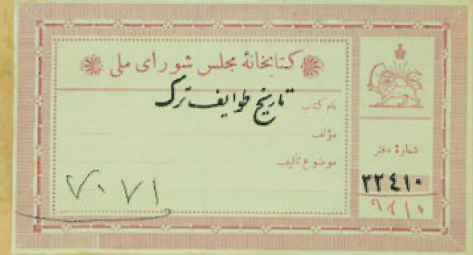 کتابخانهٔ مجلس شورای ملی
نام کتاب تاریخ طوایف ترک
مؤلف
موضوع تألیف
شمارهٔ دفتر
۲۲٤۱۰
۷۰۷۱